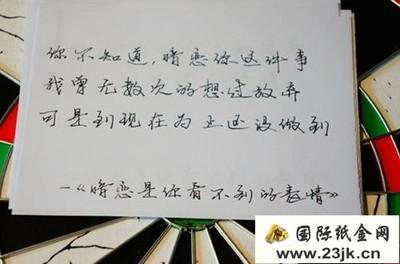 你不知道，暗恋你这件事
我曾无数次的想过放弃
可是到现在为止还没做到
—《暗恋是你看不到的表情》
国际纸金网
www.23jk.cn